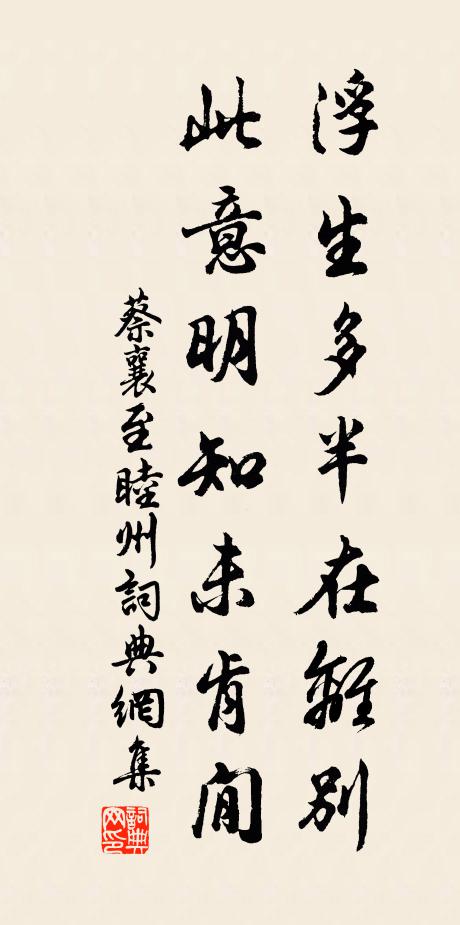 浮生多半在離別
此意明知未肯閒
蔡襄至睦州詞典網集
詞典网印